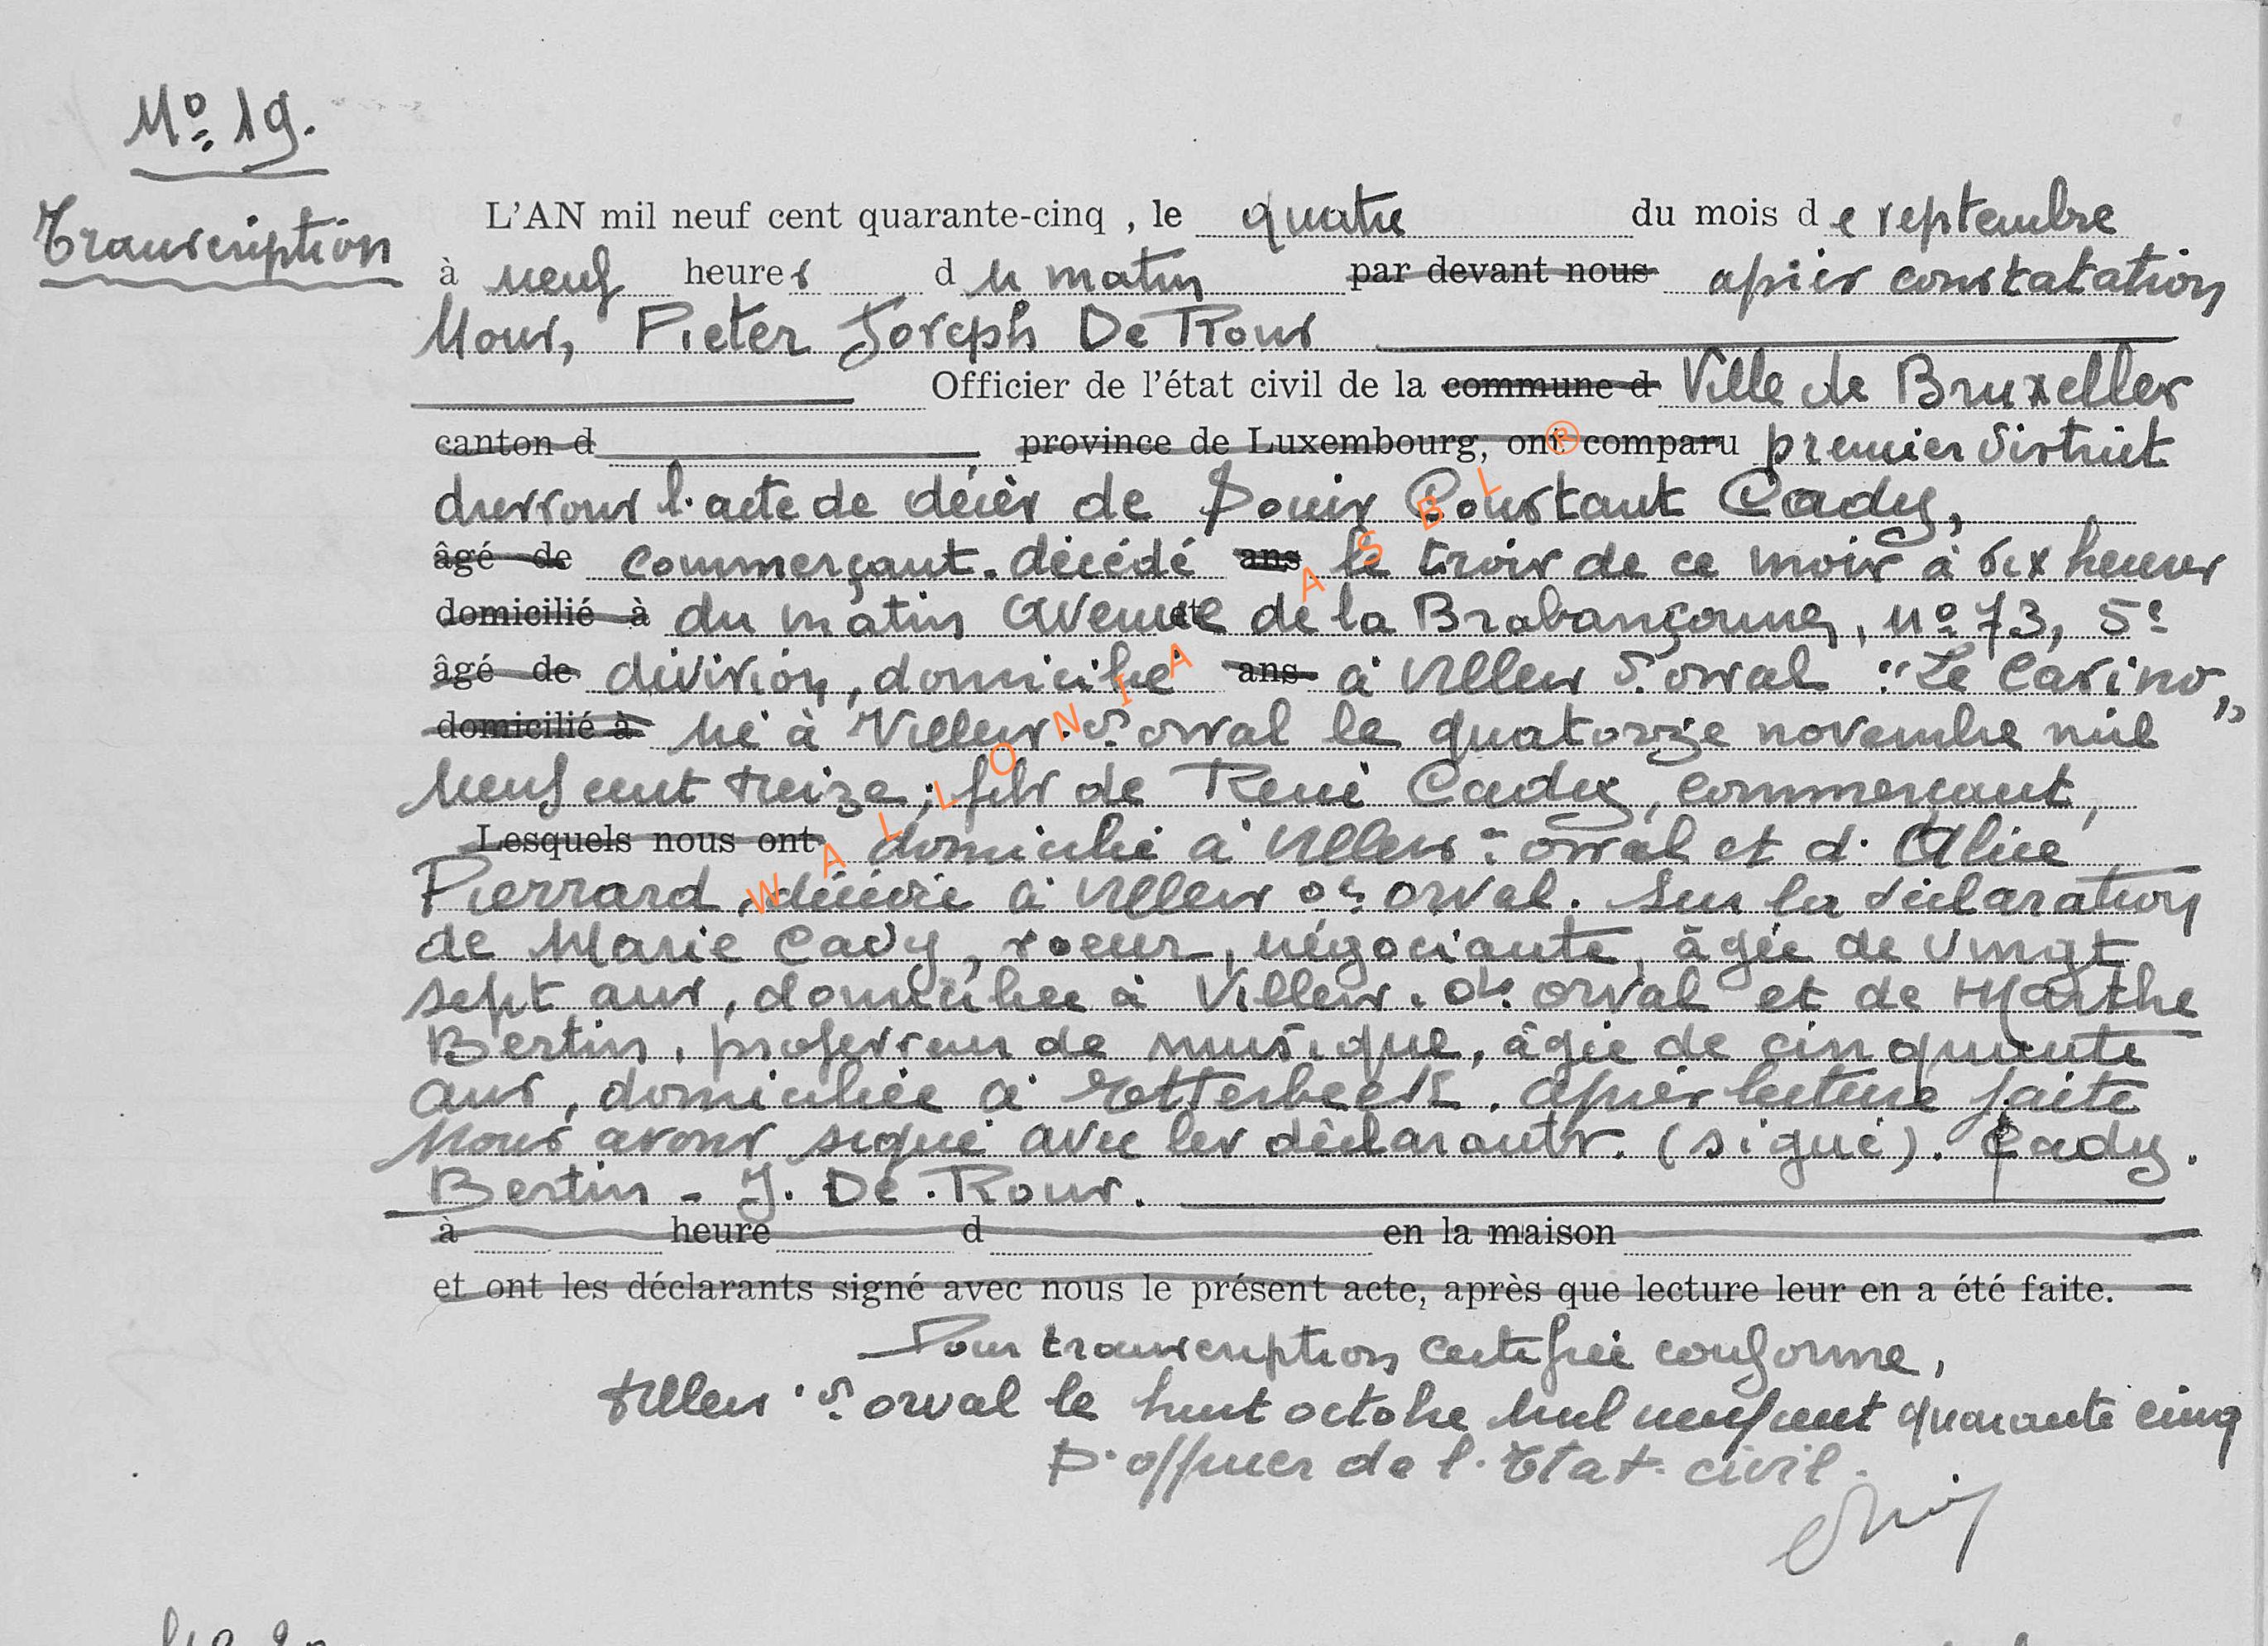 No 19.
Transcription
L'AN mil neuf cent quarante-cinq , le quatre du mois de septembre
à neuf heures du matin par devant nous après constatation
Nous, Pieter Joseph De Rons
Officier de l'état civil de la commune d Ville de Bruxelles
canton d province de Luxembourg, ont comparu premier district
dressons l'acte de décès de Louis Constant Cady,
âgé de commerçant. décédé ans le trois de ce mois à six heures
domicilié à du matin avenue et de la Brabançonne, no 73, 5e
âgé de division, domicilié ans à Villers d. orval "Le Casino"
domicilié à né à Villers. d. orval le quatorze novembre mil
neuf cent treize, fils de René Cady, commerçant,
Lesquels nous ont domicilié à Villers d. orval et d'Alice
Pierrard, décédée à Villers dt orval. Sur la déclaration
de Marie Cady, soeur, négociante, âgée de vingt
sept ans, domiciliée à Villers. dt. orval et de Marthe
Bertin, professeur de musique, âgée de cinquante
ans, domiciliée à Etterbeek. Après lecture faite
Nous avons signé avec les déclarants. (signé). Cady.
Bertin - J. De Rons.
à heure d en la maison
et ont les déclarants signé avec nous le présent acte, après que lecture leur en a été faite.
Pour transcription certifiée conforme,
Villers d. orval le huit octobre mil neuf cent quarante cinq
L'officier de l'Etat civil.
WALLONIA ASBL ®